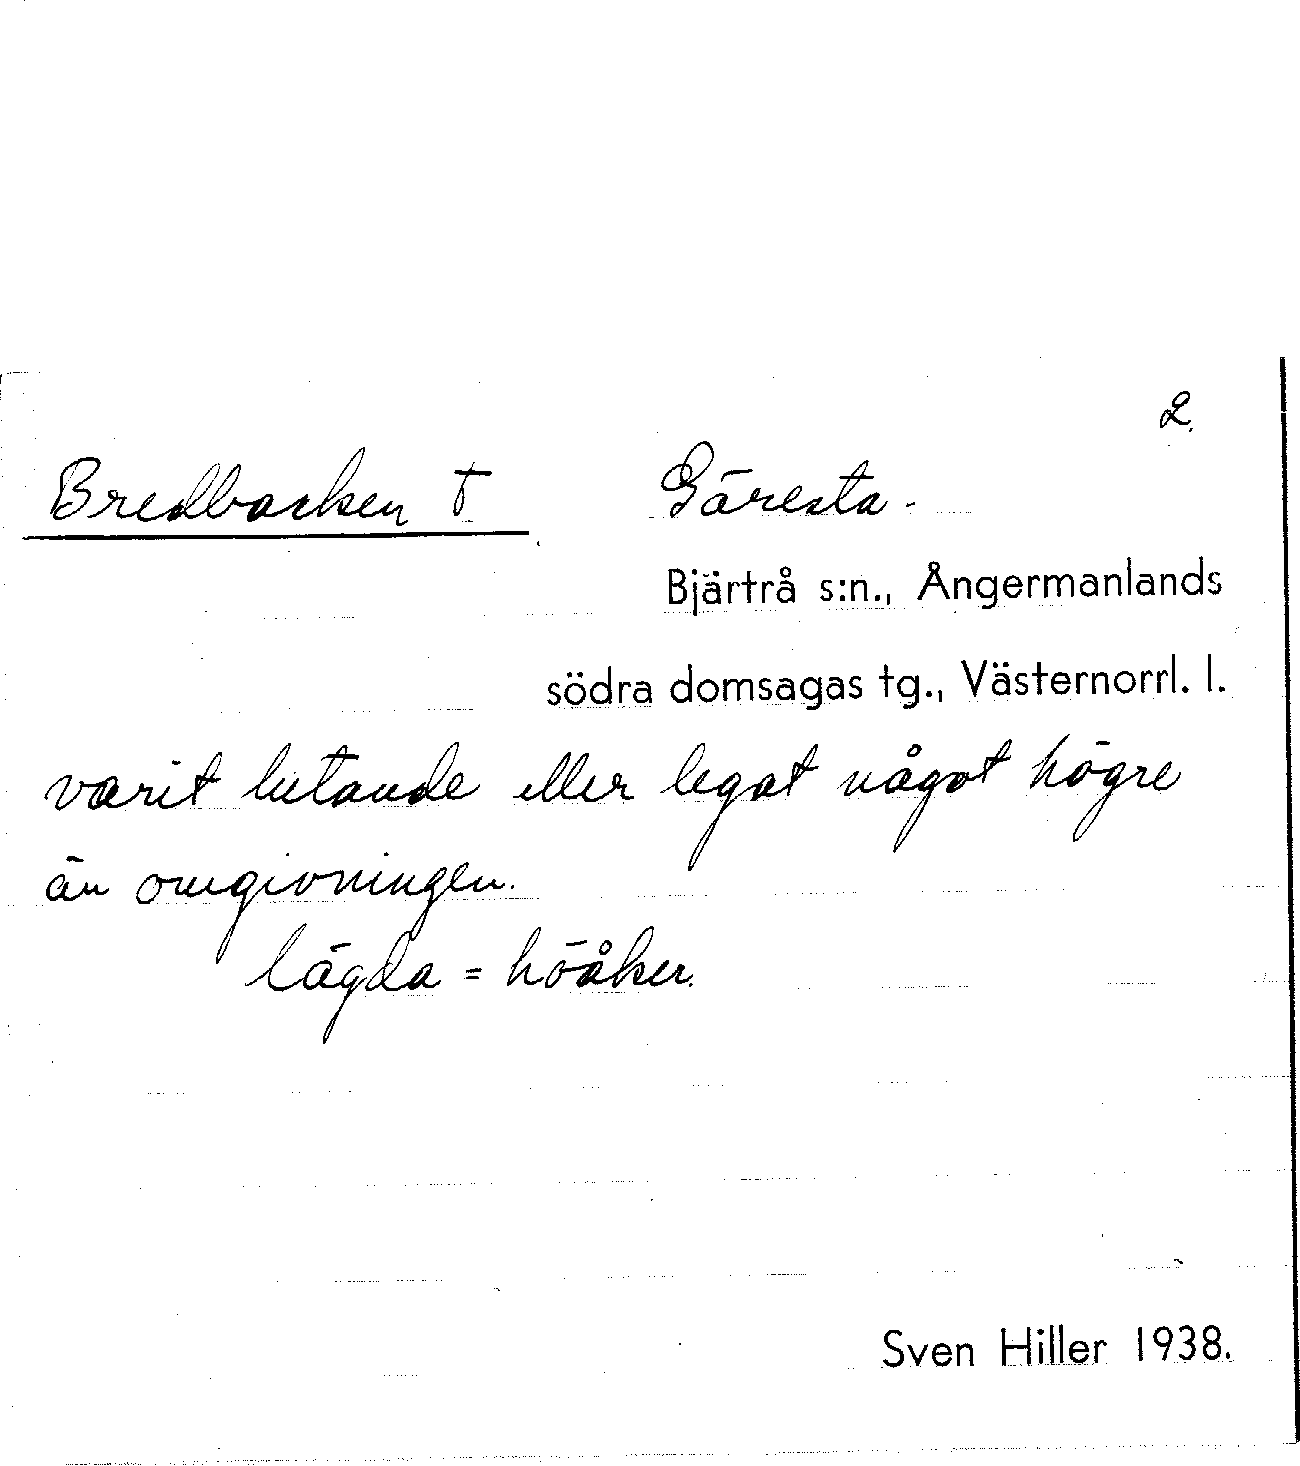 2.
Bredbacken † Gäresta.
Bjärtrå s:n., Ångermanlands
södra domsagas tg., Västernorrl. l.
varit lutande eller legat något högre
än omgivningen.
lägda = höåker.
Sven Hiller 1938.